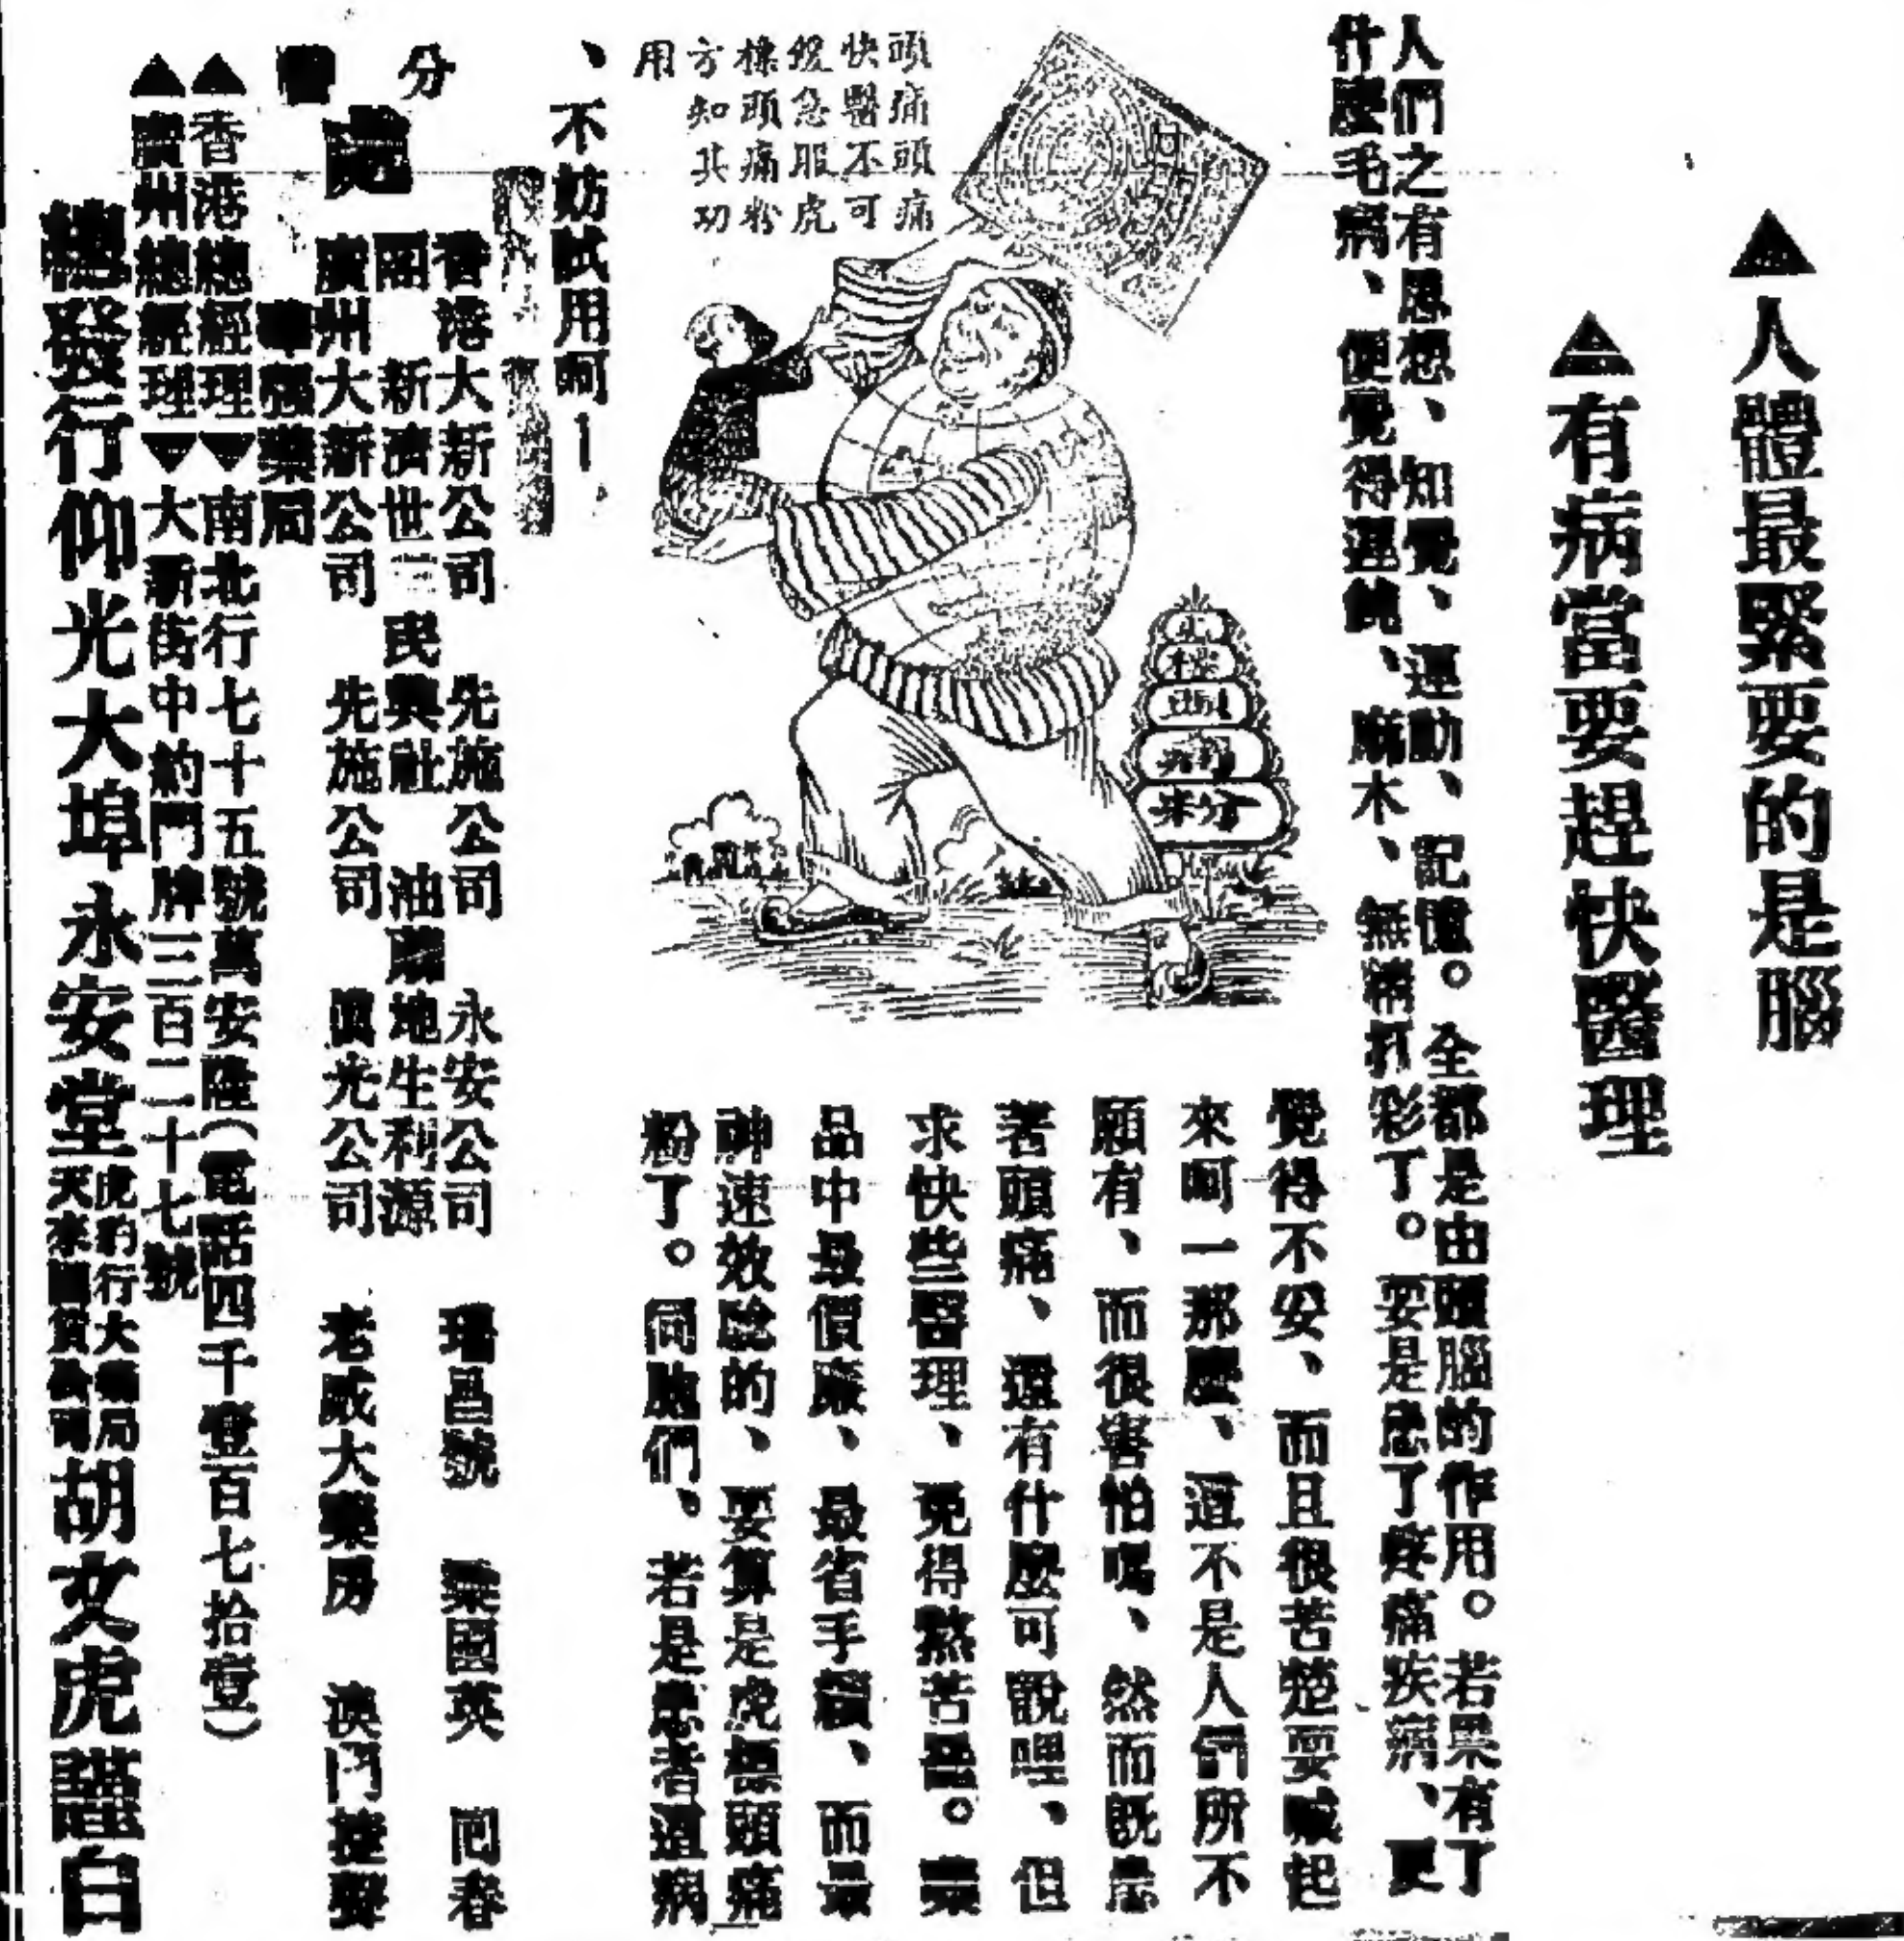 ▲人體最緊要的是腦
▲有病當要趕快醫理
人們之有思想、知覺、運動、記憶。全都是由頭腦的作用。若果有了
什麼毛病、便覺得遲鈍、麻木、無精打彩了。要是患了疼痛疾病、更
覺得不安、而且很苦楚要喊起
來呵一那麼、這不是人們所不
願有、而很害怕嗎、然而既患
著頭痛、還有什麼可說哩、但
求快些醫理、免得熬苦罷。藥
品中最價廉、最省手續、而最
神速效驗的、要算是虎標頭痛
粉了。同胞們、若是患著這病
、不妨試用呵一
頭痛頭痛
快醫不可
緩急服虎
標頭痛粉
方知其功
用
虎標頭痛粉
分售處
香港大新公司 先施公司 永安公司 瑞昌號 梁國英 同春
閣 新濟世 三民興社 油蔴地生利源
廣州大新公司 先施公司 真光公司 老威大藥房 澳門捷聲
華強藥局
▲香港總經理▼南北行七十五號萬安隆（電話四千壹百七拾壹）
▲廣州總經理▼大新街中約門牌三百二十七號
總發行仰光大埠永安堂虎豹行大藥局胡文虎謹白